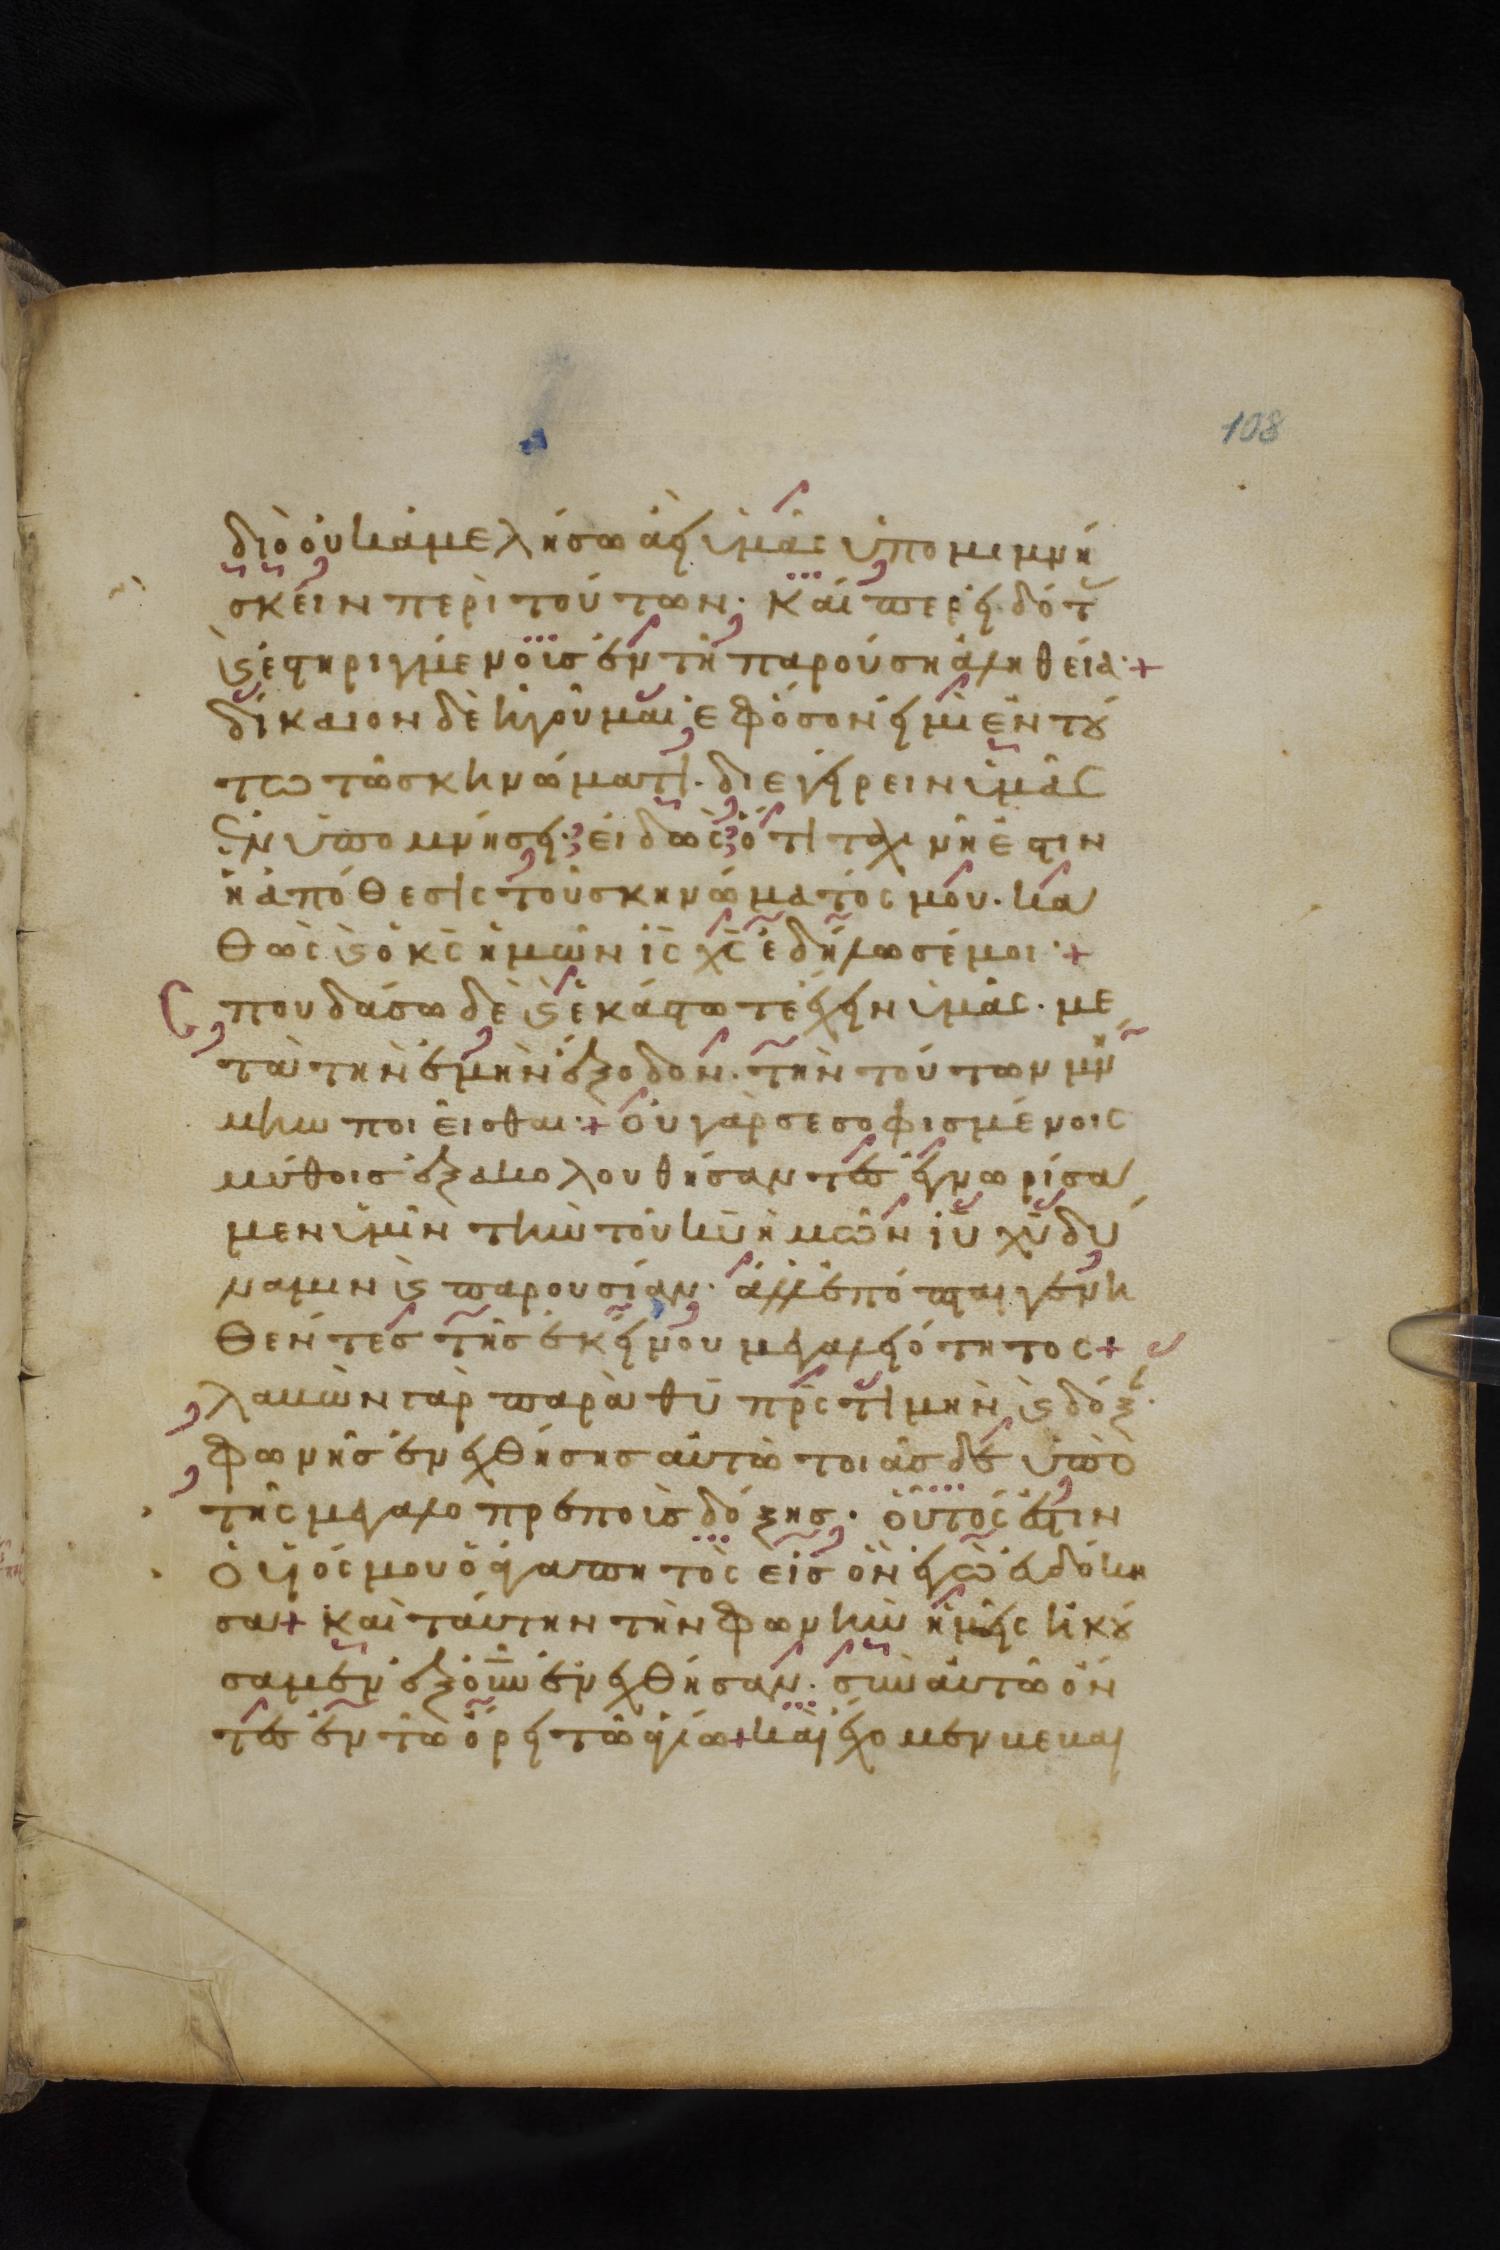 108
διὸ οὐκ ἀμελήσω ἀεὶ ὑμᾶς ὑπομιμνή
σκειν περὶ τούτων· καίπερ εἰδότ
ϛ ἐστηριγμένοις ἐν τῆ παρούση ἀληθεία·+
δίκαιον δὲ ἡγοῦμαι ἐφόσον εἰμὶ ἐν τȣ́
τω τῶ σκηνώματι· διεγείρειν ὑμᾶς
ἐν ὑπομνήσει· εἰδὼς ὅτι ταχινή ἐστιν
ἡ ἀπόθεσις τοῦ σκηνώματός μου· κα
θὼς ϛ ὁ κς ἡμῶν ις χς ἐδήλωσέ μοι·+
Σπουδάσω δὲ ϛ ἑκάστωτε ἔχειν ὑμᾶς· με
τὰ τὴν ἐμὴν ἔξοδον· τὴν τούτων μνή
μην ποιεῖσθαι·+ Οὐ γὰρ σεσοφισμένοις
μύθοις ἐξακολουθήσαντες ἐγνωρίσα
μεν ὑμῖν τὴν τοῦ κυ ἡμῶν ιυ χυ δύ
ναμιν ϛ παρουσίαν· ἀλλ' ἐπόπται γενη
θέντες τῆς ἐκείνου μεγαλειότητος+
λαβὼν γὰρ παρὰ θυ πρς τιμὴν ϛ δόξ·
φωνῆς ἐνεχθήσης αὐτῶ τοιᾶσδε ὑπὸ
τῆς μεγαλοπρεποῖς δόξης· οὗτός ἐστιν
ὁ υἱός μου ὁ ἀγαπητὸς εἰς ὃν ἐγὼ εὐδόκη
σα+ καὶ ταύτην τὴν φωνὴν ἡμεῖς ἠκȣ́
σαμεν ἐξ οὐνου ἐνεχθῆσαν· σὺν αὐτῶ ὄν
τες ἐν τῶ ὄρει τῶ ἁγίω+ καὶ ἔχομεν βεβαι